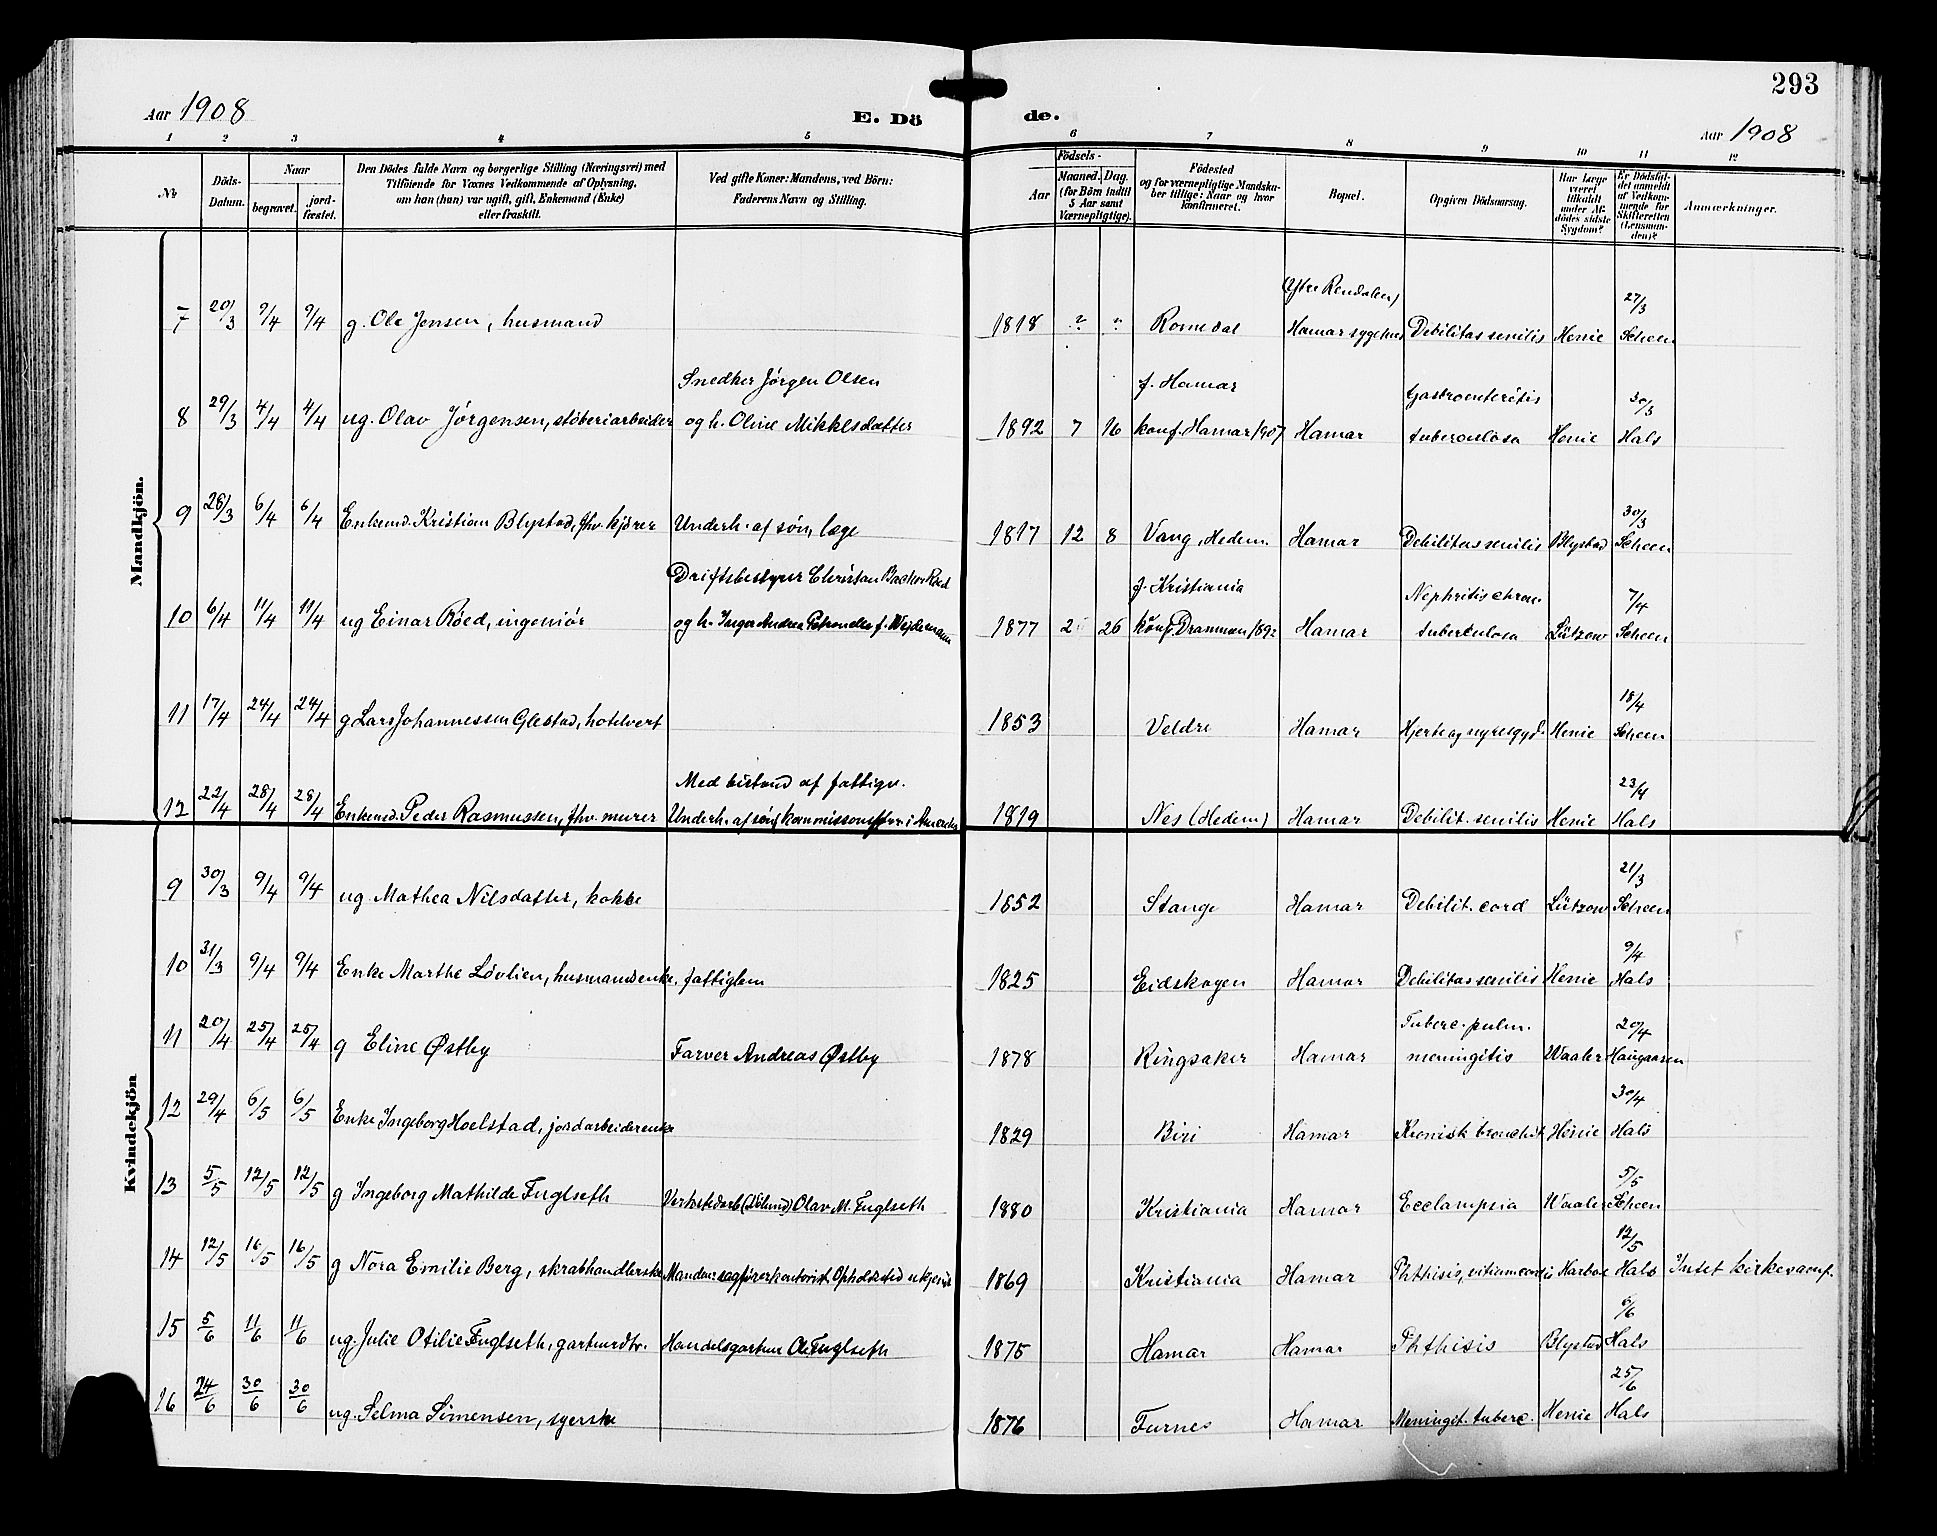 293
Aar 1908
E. Dö
de.
Aar 1908
1 2 3 4 5 6 7 8 9 10 11 12
No
Döds-Datum.
Naar
begravet.
jord-fæstet.
Den Dödes fulde Navn og borgerlige Stilling (Næringsvei) med
Tilföiende for Voxnes Vedkommende af Oplysning,
om han (hun) var ugift, gift, Enkemand (Enke)
eller fraskilt.
Ved gifte Koner: Mandens, ved Börn:
Faderens Navn og Stilling.
Födsels-
Aar
Maaned. Dag.
(for Börn indtil
5 Aar samt
Værnepligtige).
Födested
og for værnepligtige Mandska-
ber tillige: Naar og hvor
konfirmeret.
Bopæl.
Opgiven Dödsaarsag.
Har Læge
været
tilkaldt
under Af-
dödes sidste
Sygdom?
Er Dödsfal-
det anmeldt
af Vedkom-
mende for
Skifteretten
(Lensman-
den)?
Anmærkninger.
Mandkjön.
(Ytre Rendalen)
7 20/3 9/4 9/4 g. Ole Jensen, husmand 1818 ? " Romedal Hamar sygehus Debilitas senilis Henie 27/3 Scheen
Snedker Jørgen Olsen f. Hamar Gastroenteritis
8 29/3 4/4 4/4 ug. Olav Jörgensen, stöberiarbeider og h. Oline Mikkelsdatter 1892 7 16 konf. Hamar 1907 Hamar tuberculosa Henie 30/3 Hals
9 28/3 6/4 6/4 Enkemd. Kristian Blystad, fhv. kjörer Underh. af sön, læge 1817 12 8 Vang, Hedem. Hamar Debilitas senilis Blystad 30/3 Scheen
Driftsbestyrer Christian Backer Röed f. Kristiania Nephritis chron
10 6/4 11/4 11/4 ug Einar Röed, ingeniör og h. Inger Andrea f. Wejdemann 1877 2 26 konf. Drammen 1892 Hamar tuberkulosa Lützow 7/4 Scheen
11 17/4 24/4 24/4 g Lars Johannessen Glestad, hotelvert 1853 Veldre Hamar Hjerte og nyresygd. Henie 18/4 Scheen
Med bistand af fattigv.
12 22/4 28/4 28/4 Enkemd. Peder Rasmussen, fhv. murer Underh. af sön, i Amerika 1819 Nes (Hedem) Hamar Debilit. senilis Henie 23/4 Hals
Kvindekjön
9 30/3 9/4 9/4 ug. Mathea Nilsdatter, kokke 1852 Stange Hamar Debilit. cord Lützow 21/3 Scheen
10 31/3 9/4 9/4 Enke Marthe Lövlien, husmandsenke. fattiglem 1825 Eidskogen Hamar Debilitas senilis Henie 9/4 Hals
Tuberc. pulm.
11 20/4 25/4 25/4 g Eline Østby Farver Andreas Østby 1878 Ringsaker Hamar meningitis Waaler 20/4 Haugaasen
12 29/4 6/5 6/5 Enke Ingeborg Hoelstad, jordarbeiderenke 1829 Biri Hamar Kronisk bronchit Henie 30/4 Hals
13 5/5 12/5 12/5 g Ingeborg Mathilde Fuglseth Verkstedarb. Olav M. Fuglseth 1880 Kristiania Hamar Ecclampsia Waaler 5/5 Scheen
14 12/5 16/5 16/5 g Nora Emilie Berg, skrabhandlerske Manden: sagförerkontorist Opholdsted ukjendt 1869 Kristiania Hamar Phthisis, vitium cordis Harboe 12/5 Hals Intet kirkesamf.
15 5/6 11/6 11/6 ug. Julie Otilie Fuglseth, gartnerdtr. Handelsgartner O. Fuglseth 1875 Hamar Hamar Phthisis Blystad 6/6 Hals
16 24/6 30/6 30/6 ug. Selma Simensen, syerske 1876 Furnes Hamar Meningit. tuberc. Henie 25/6 Hals